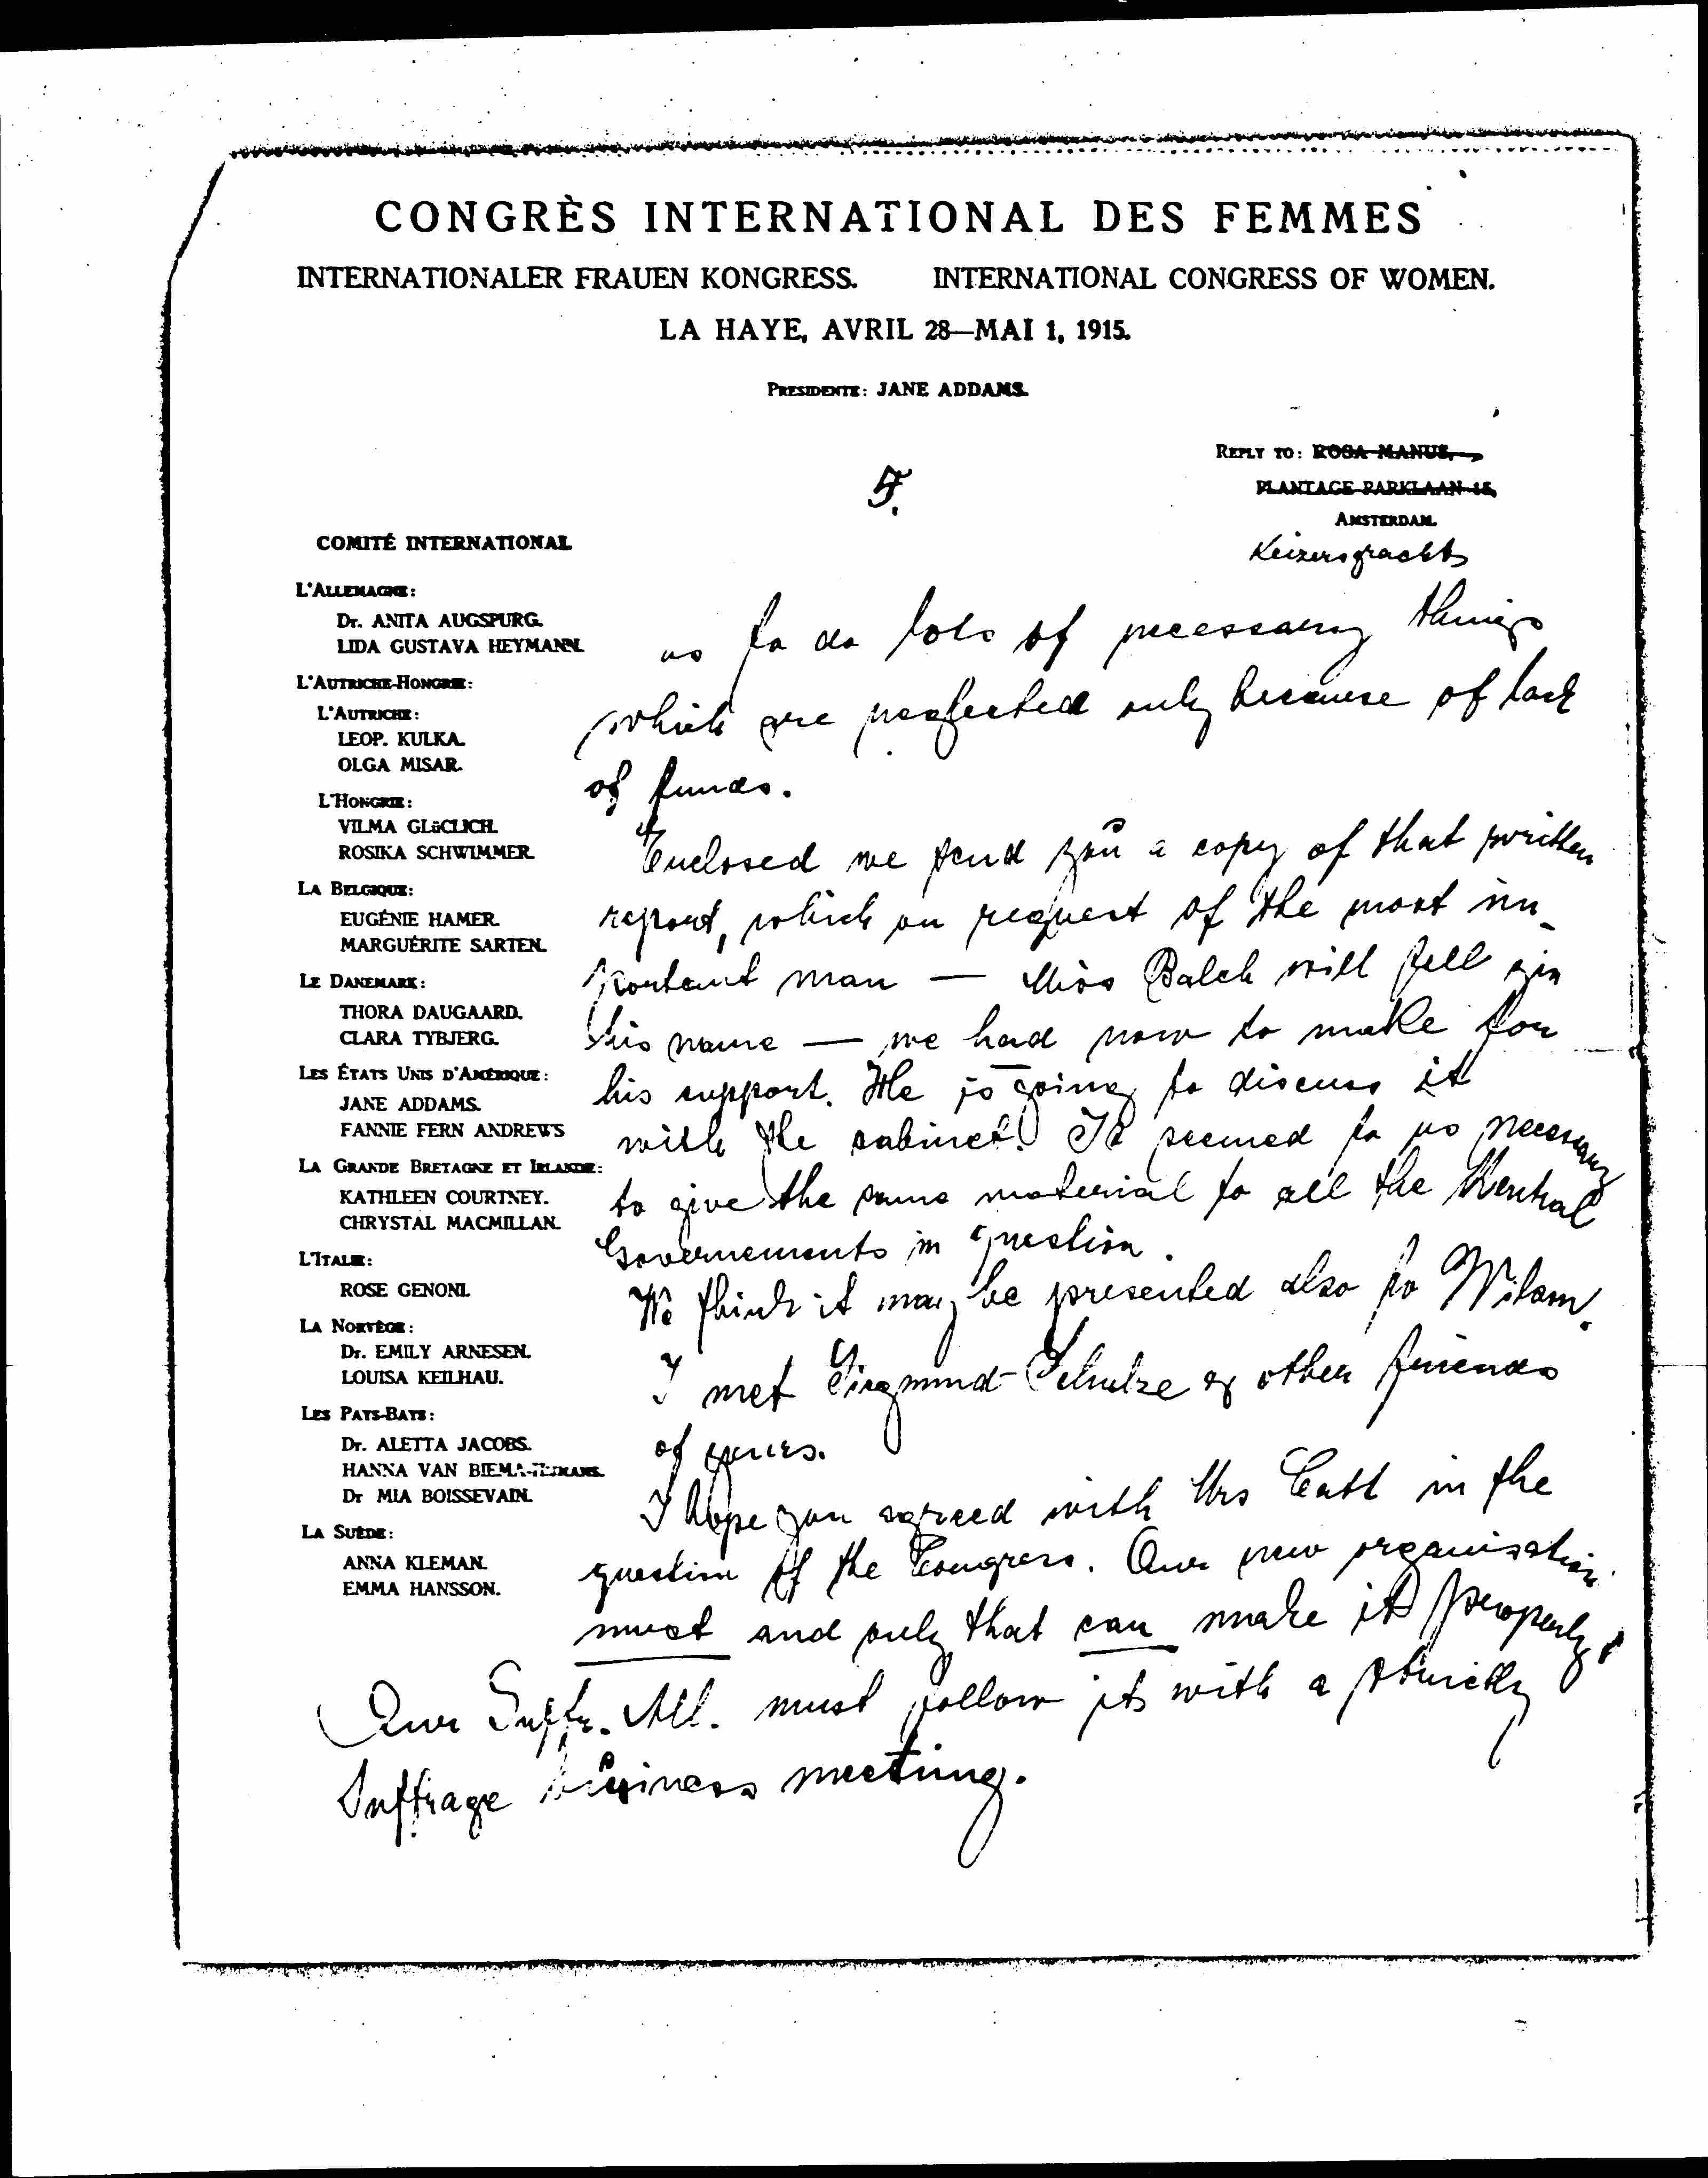 CONGRÈS INTERNATIONAL DES FEMMES
INTERNATIONALER FRAUEN KONGRESS. INTERNATIONAL CONGRESS OF WOMEN.
LA HAYE, AVRIL 28—MAI 1, 1915.
PRESIDENTE: JANE ADDAMS.
REPLY TO: ROSA MANUS,
PLANTAGE PARKLAAN 15,
AMSTERDAM.
Keizersgracht
5.
COMITÉ INTERNATIONAL
L'ALLEMAGNE:
Dr. ANITA AUGSPURG.
LIDA GUSTAVA HEYMANN.
L'AUTRICHE-HONGRIE:
L'AUTRICHE:
LEOP. KULKA.
OLGA MISAR.
L'HONGRIE:
VILMA GLüCLICH.
ROSIKA SCHWIMMER.
LA BELGIQUE:
EUGÉNIE HAMER.
MARGUÉRITE SARTEN.
LE DANEMARK:
THORA DAUGAARD.
CLARA TYBJERG.
LES ÉTATS UNIS D'AMÉRIQUE:
JANE ADDAMS.
FANNIE FERN ANDREWS
LA GRANDE BRETAGNE ET IRLANDE:
KATHLEEN COURTNEY.
CHRYSTAL MACMILLAN.
L'ITALIE:
ROSE GENONI.
LA NORVÈGE:
Dr. EMILY ARNESEN.
LOUISA KEILHAU.
LES PAYS-BAYS:
Dr. ALETTA JACOBS.
HANNA VAN BIEMA-HIJMANS.
Dr MIA BOISSEVAIN.
LA SUÈDE:
ANNA KLEMAN.
EMMA HANSSON.
us to do lots of necessary things
which are neglected only because of lack
of funds.
Enclosed we send you a copy of that written
report, which on request of the most im-
portant man — Miss Balch will tell you
his name — we had now to make for
his support. He is going to discuss it
with the cabinet. It seemed to us necessary
to give the same material to all the Neutral
Governements in question.
We think it may be presented also to Wilson.
I met Siegmund-Schulze & other friends
of yours.
I hope you agreed with Mrs Catt in the
question of the Congress. Our new organisation
must and only that can make it properly.
Our Suffr. All. must follow it with a strictly
Suffrage business meeting.